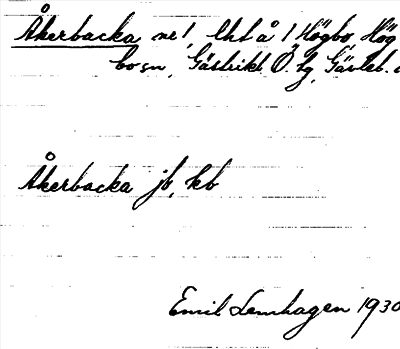 Åkerbacka
Högbo, Hög
bo sn, Gästrikl. Ö. tg, Gävleb.
Åkerbacka jb, kb
Emil Lemhagen 1930